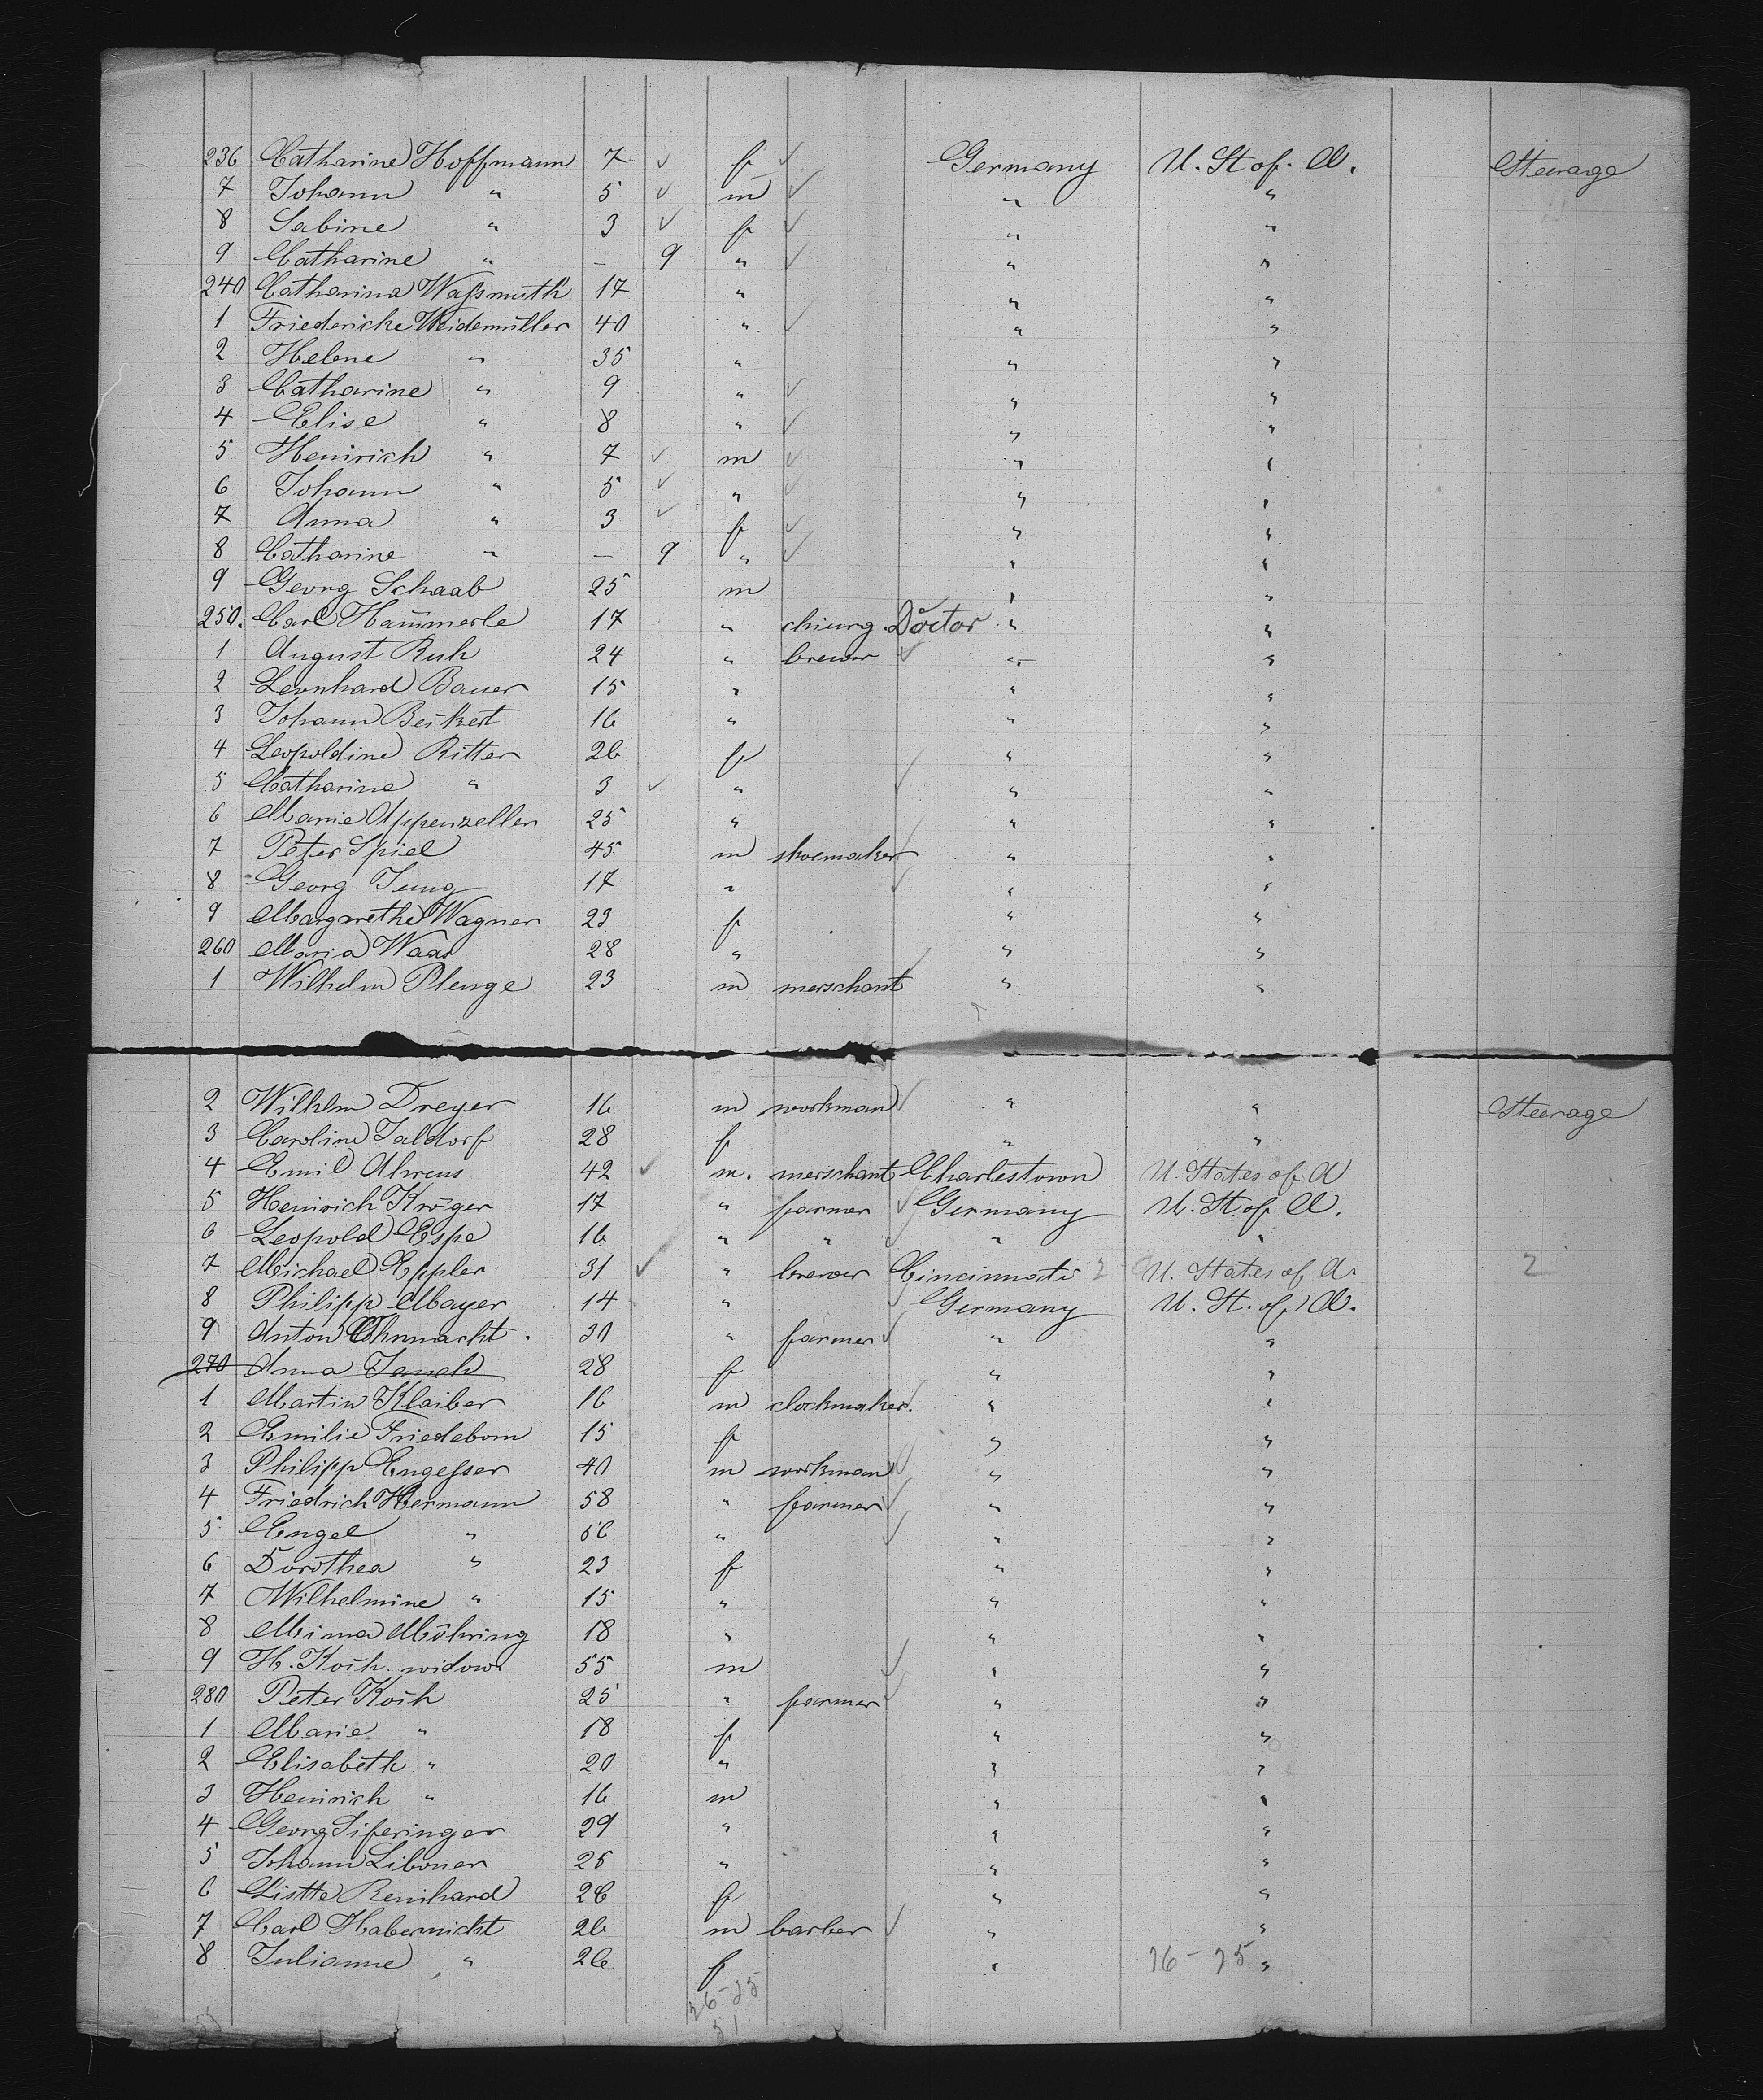 236 Catharine Hoffmann 7 ✓ f ✓ Germany U. St of. A. Steerage
7 Johann " 5 ✓ m ✓ " "
8 Sabine " 3 ✓ f ✓ " "
9 Catharine " – 9 " ✓ " "
240 Catharina Waßmuth 17 " " "
1 Friedericke Weidemüller 40 " ✓ " "
2 Helene " 35 " " "
3 Catharine " 9 " ✓ " "
4 Elise " 8 " ✓ " "
5 Heinrich " 7 ✓ m ✓ " "
6 Johann " 5 ✓ " ✓ " "
7 Anna " 3 ✓ f ✓ " "
8 Catharine " – 9 " ✓ " "
9 Georg Schaab 25 m " "
250. Carl Hämmerle 17 " chiurg. Doctor " "
1 August Ruh 24 " brewer ✓ " "
2 Leonhard Bauer 15 " " "
3 Johann Beikert 16 " " "
4 Leopoldine Ritter 26 f " "
5 Catharine " 3 ✓ " ✓ " "
6 Marie Appenzeller 25 " " "
7 Peter Spiel 45 m shoemaker " "
8 Georg Jung 17 " ✓ " "
9 Margarethe Wagner 23 f " "
260 Maria Waas 28 " " "
1 Wilhelm Plenge 23 m merschant " "
2 Wilhlm Dreyer 16 m workman ✓ " " Steerage
3 Caroline Taldorf 28 f " "
4 Emil Ahrens 42 ✓ m. merschant Charlestown U. States of A
5 Heinrich Kröger 17 " farmer ✓ Germany U. St. of A.
6 Leopold Espe 16 " " ✓ " "
7 Michael Eppler 31 ✓ " brewer Cincinnati 2 U. States of A. 2
8 Philipp Mayer 14 " ✓ Germany U. St. of A.
9 Anton Ehrmacht. 30 " farmer ✓ " "
270 Anna Jauch 28 f " "
1 Martin Klaiber 16 m clockmaker. ✓ " "
2 Emilie Friedeborn 15 f " "
3 Philipp Engesser 40 m workman ✓ " "
4 Friedrich Hermann 58 " farmer ✓ " "
5 Engel " 56 " ✓ " "
6 Dorothea " 23 f " "
7 Wilhelmine " 15 " " "
8 Mina Möhring 18 " " "
9 H. Koch. widow 55 m ✓ " "
280 Peter Koch 25 " farmer ✓ " "
1 Marie " 18 f " "
2 Elisabeth " 20 " " "
3 Heinrich " 16 m " "
4 Georg Siferinger 29 " " "
5 Johann Liboner 25 " " "
6 Listte Reinhard 26 f " "
7 Carl Habernicht 26 m barber ✓ " "
8 Julianne " 26 f " 26-25 "
26-25
51